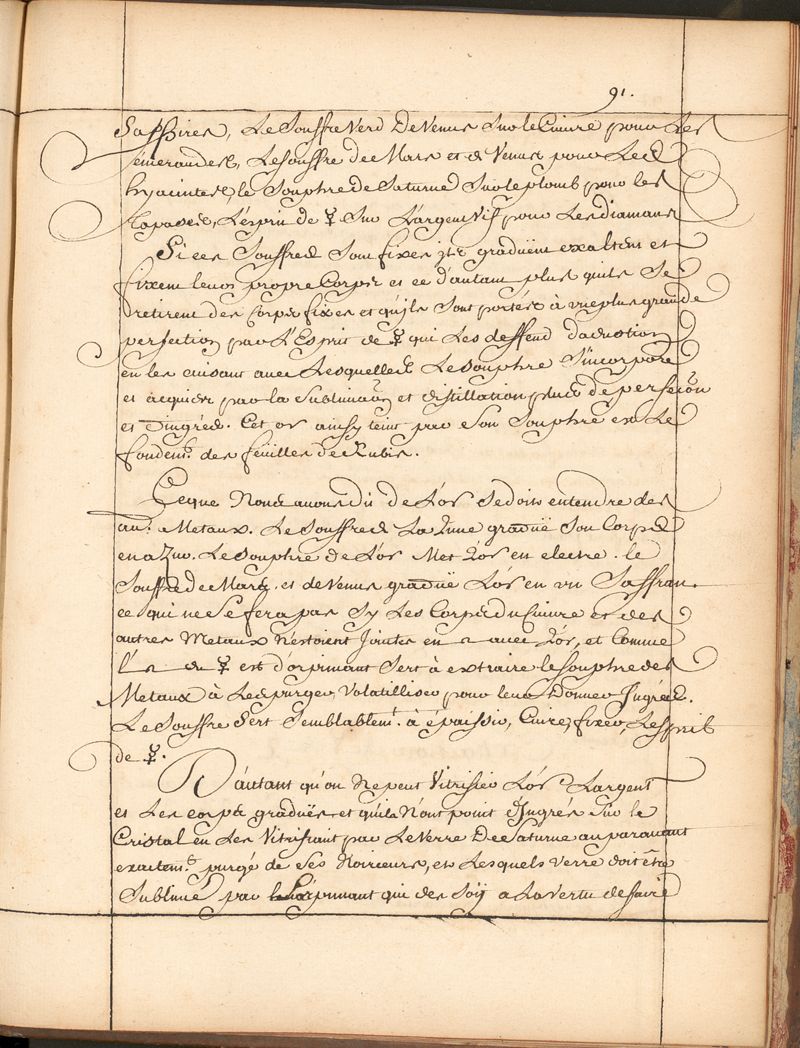 91.
Saffirer, Le Souffre Verd De Venus Sur le Cuivre pour Les
émeraudes, Le Souffre de Mars et de Venus pour Les
hyacintes, le Souphre de Saturne Sur le plomb pour les
Topases, L'esprit de ☿ Sur L'argent Vif pour Les diamans
Si ces Souffres Sont fixes ils graduënt exaltent et
fixent leurs propre Corps et ce d'autant plus quils Se
retirent des Corps fixes et qu'ils Sont portés à une plus grande
perfection par L'Esprit de ☿ qui Les deffend d'adustion
en les cuisant avec Lesquelles Le Souphre S'incorpore
et acquier par la Sublimaõn et distillation plus de perfeciõn
et D'ingrés. Cet or ainsy teint par Son Souphre est Le
fondemt. des feuilles de Rubis.
Ceque Nous avons dit de L'or Se doit entendre des
aut. Metaux. Le Souffre de La Lune graduë Son Corps
en azur. Le Souphre de L'or Met L'or en electre. le
Souffre de Mars, et de Venus graduë L'or en un Saffran.
ce qui ne Se fera pas Sy Les Corps du Cuivre et des
autres Metaux N'estoient Joints en avec L'or, et Comme
l' du ☿ et d'orpimant Sert à extraire le Souphre des
Metaux à Les purger, Volatilliser pour leur Donner Ingrés.
Le Souffre Sert Semblablemt. à épaissir, Cuire, fixer, L'esprit
de ☿.
D'autant qu'on Ne peut Vitrifier L'or L'argent
et Les corps graduës et quils N'ont point d'Ingrés Sur le
Cristal en Les Vitrifiant par Le Verre De Saturne auparavant
exactemt. purgé de Ses Noirceurs, et Lesquels verre doit être
Sublimé par L'orpimant qui de Soÿ a La vertu de faire